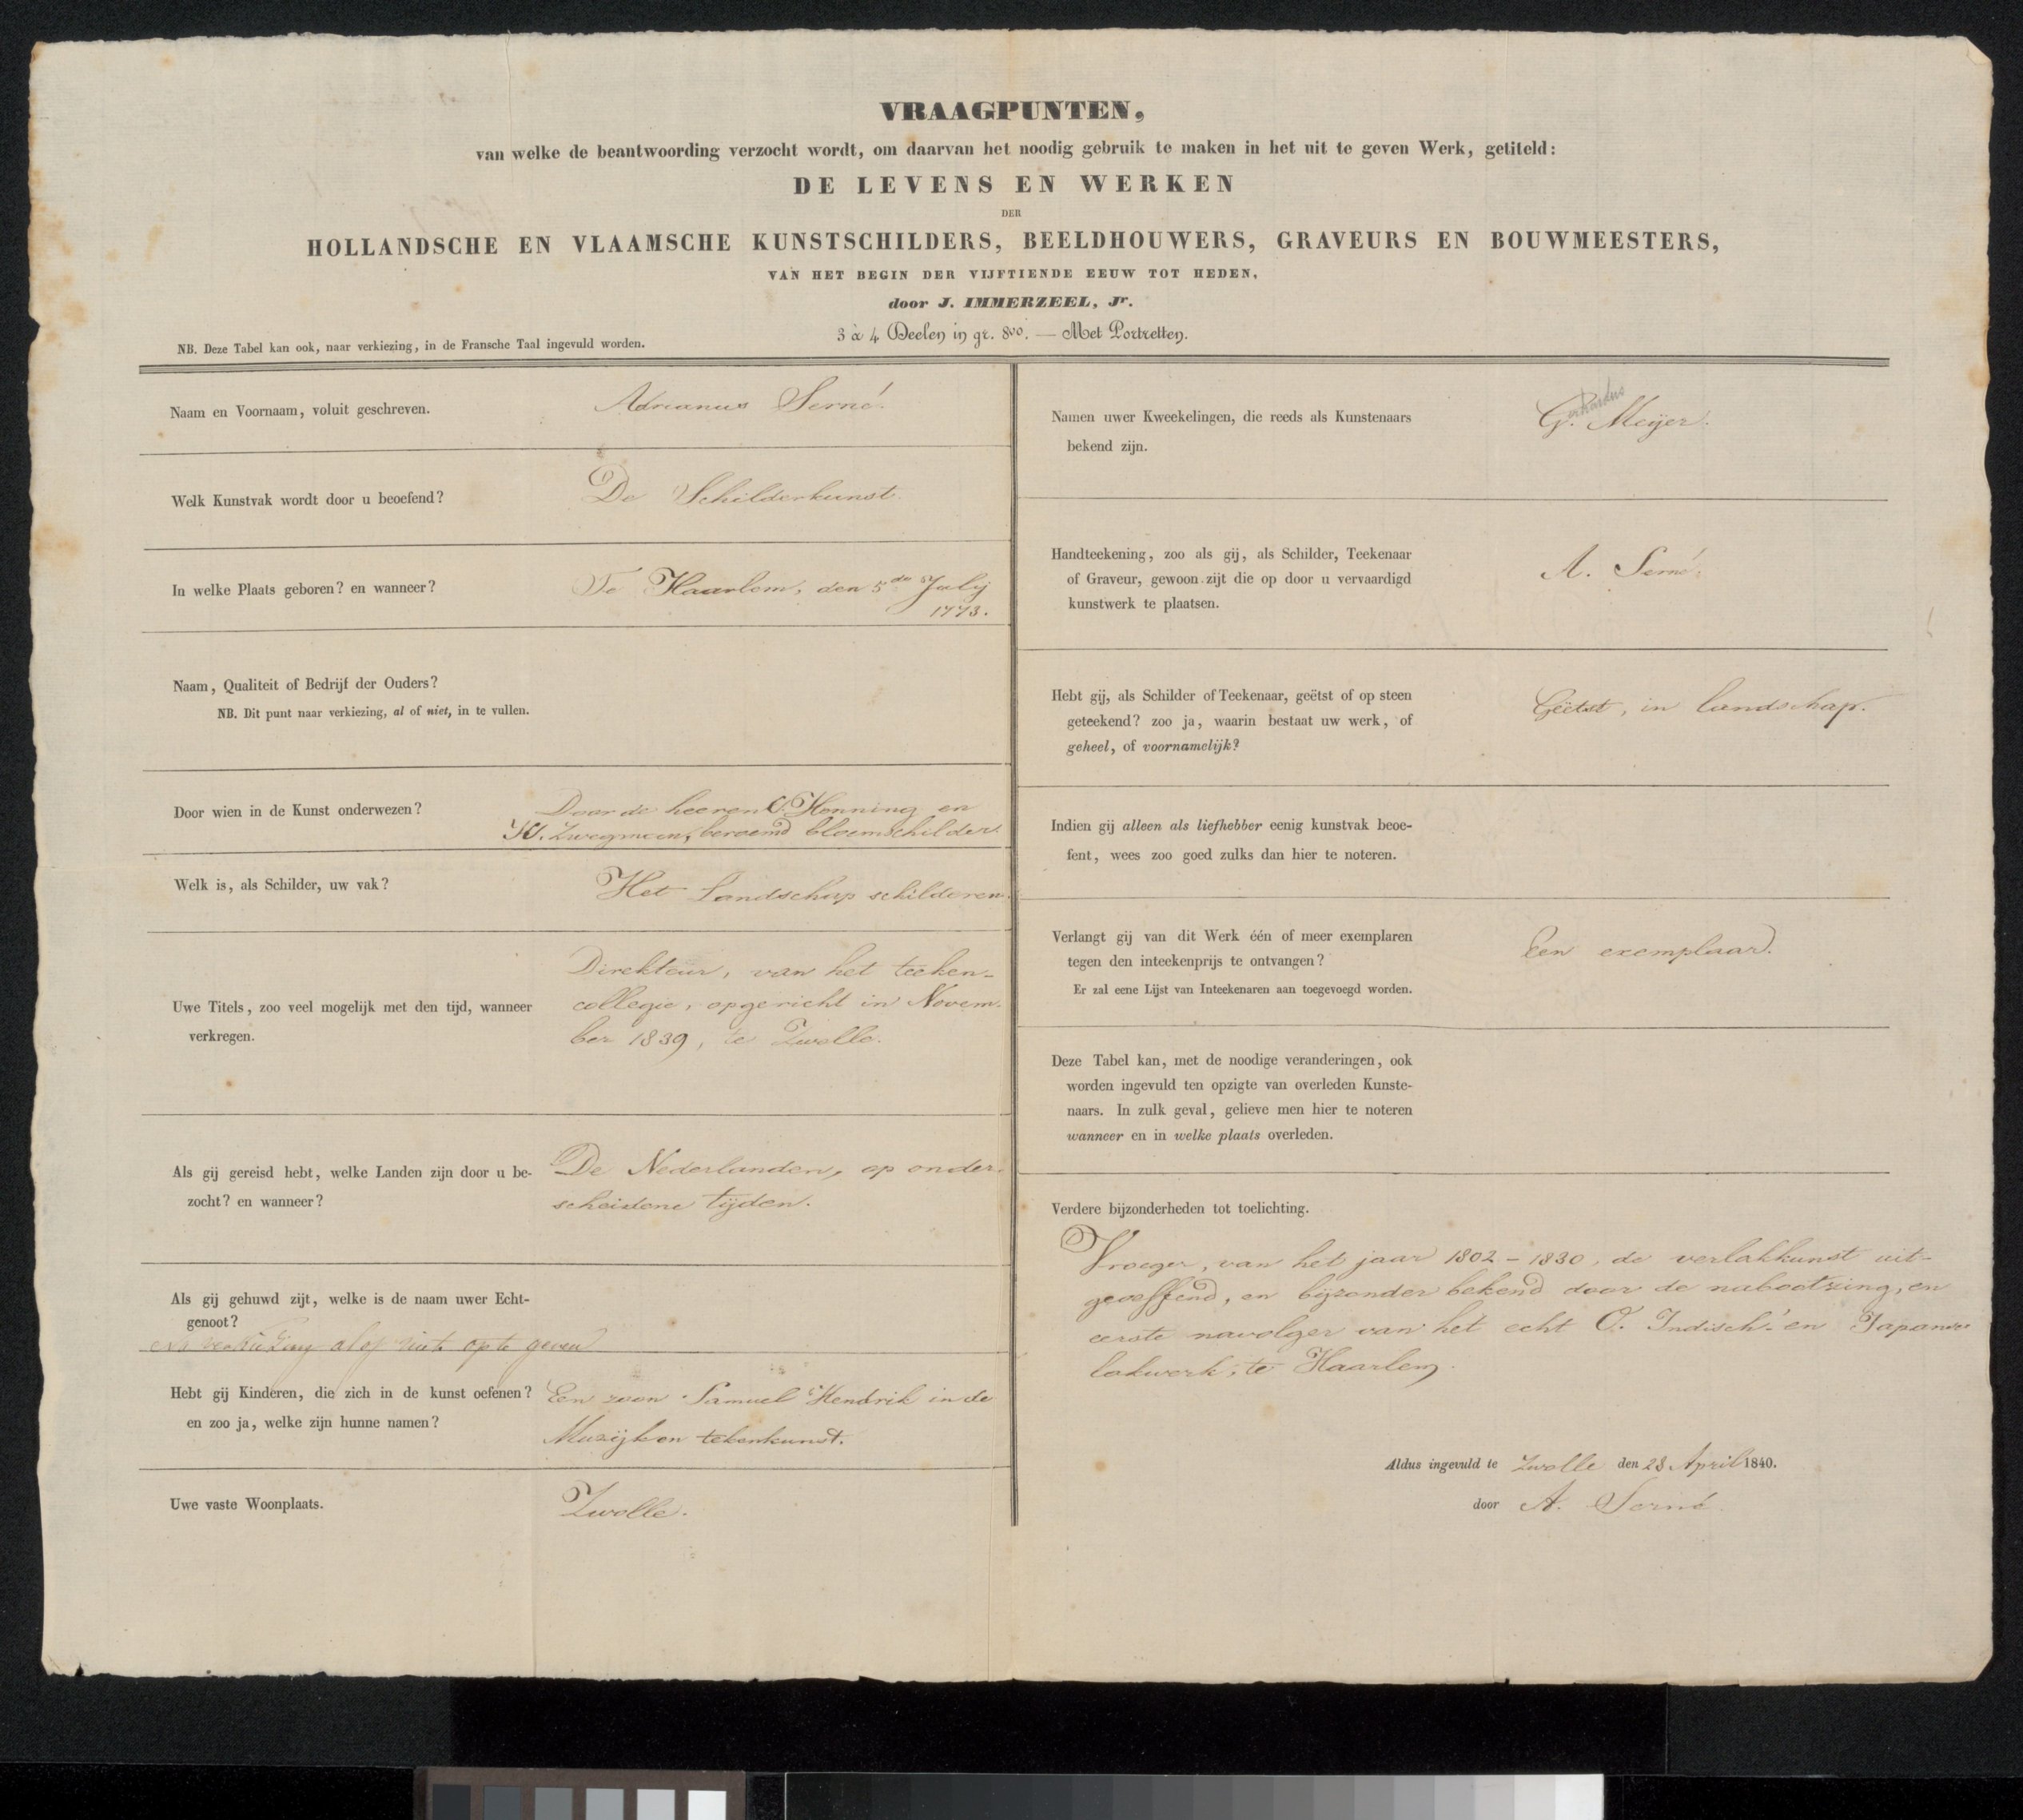 VRAAGPUNTEN,
van welke de beantwoording verzocht wordt, om daarvan het noodig gebruik te maken in het uit te geven Werk, getiteld:
DE LEVENS EN WERKEN
DER
HOLLANDSCHE EN VLAAMSCHE KUNSTSCHILDERS, BEELDHOUWERS, GRAVEURS EN BOUWMEESTERS,
VAN HET BEGIN DER VIJFTIENDE EEUW TOT HEDEN,
door J. IMMERZEEL, Jr.
3 à 4 Deelen in gr. 8vo. — Met Portretten.
NB. Deze Tabel kan ook, naar verkiezing, in de Fransche Taal ingevuld worden.
Naam en Voornaam, voluit geschreven.
Adrianus Serné.
Welk Kunstvak wordt door u beoefend?
De Schilderkunst.
In welke Plaats geboren? en wanneer?
Te Haarlem, den 5de July
1773.
Naam, Qualiteit of Bedrijf der Ouders?
NB. Dit punt naar verkiezing, al of niet, in te vullen.
Door wien in de Kunst onderwezen?
Door de heeren C. Henning en
beroemd bloemschilder.
Welk is, als Schilder, uw vak?
Het Landschap schilderen.
Uwe Titels, zoo veel mogelijk met den tijd, wanneer
verkregen.
Direkteur, van het teeken-
collegie, opgericht in Novem-
ber 1839, te Zwolle.
Als gij gereisd hebt, welke Landen zijn door u be-
zocht? en wanneer?
De Nederlanden, op onder-
scheidene tijden.
Als gij gehuwd zijt, welke is de naam uwer Echt-
genoot?
verkiezing al of niet op te geven
Hebt gij Kinderen, die zich in de kunst oefenen?
en zoo ja, welke zijn hunne namen?
Een zoon Samuel Hendrik in de
Muzijk en tekenkunst.
Uwe vaste Woonplaats.
Zwolle.
Namen uwer Kweekelingen, die reeds als Kunstenaars
bekend zijn.
Gerhardus
G. Meijer.
Handteekening, zoo als gij, als Schilder, Teekenaar
of Graveur, gewoon zijt die op door u vervaardigd
kunstwerk te plaatsen.
A. Serné.
Hebt gij, als Schilder of Teekenaar, geëtst of op steen
geteekend? zoo ja, waarin bestaat uw werk, of
geheel, of voornamelijk?
Geëtst, in landschap.
Indien gij alleen als liefhebber eenig kunstvak beoe-
fent, wees zoo goed zulks dan hier te noteren.
Verlangt gij van dit Werk één of meer exemplaren
tegen den inteekenprijs te ontvangen?
Er zal eene Lijst van Inteekenaren aan toegevoegd worden.
Een exemplaar.
Deze Tabel kan, met de noodige veranderingen, ook
worden ingevuld ten opzigte van overleden Kunste-
naars. In zulk geval, gelieve men hier te noteren
wanneer en in welke plaats overleden.
Verdere bijzonderheden tot toelichting.
Vroeger, van het jaar 1802 - 1830, de verlakkunst uit-
geoeffend, en bijzonder bekend door de nabootzing, en
eerste navolger van het echt O. Indisch- en Japansch
lakwerk, te Haarlem.
Aldus ingevuld te Zwolle den 28 April 1840.
door A. Serné